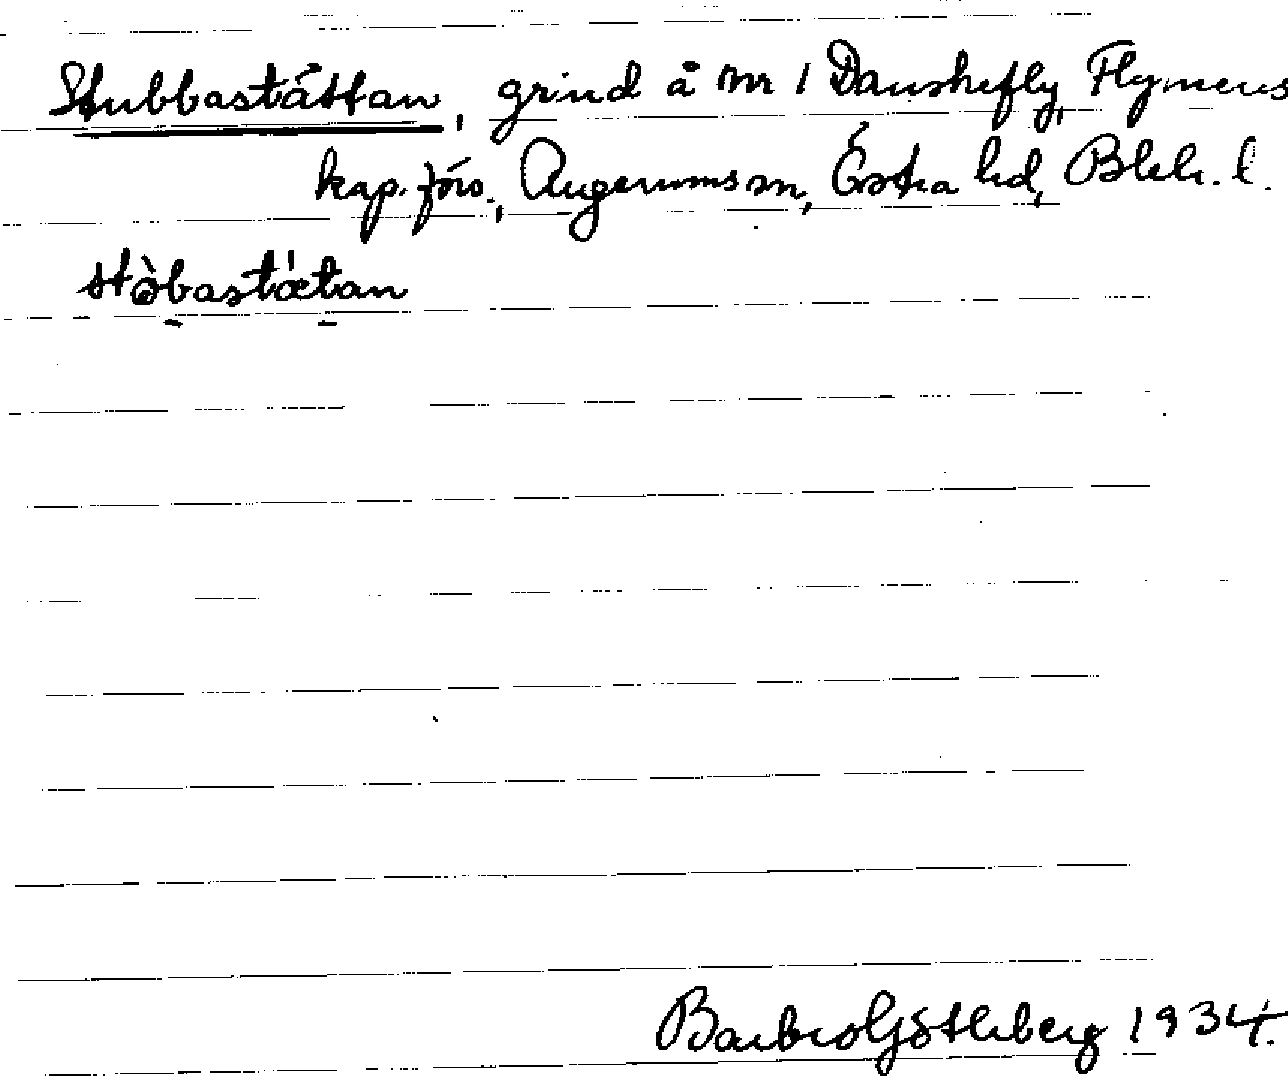 Stubbastättan, grind å nr 1 Danskefly, Flymens
kap. förs., Augerums sn, Östra hd, Blek. l.
stòbastǽtan
Barbro Götleberg 1934.